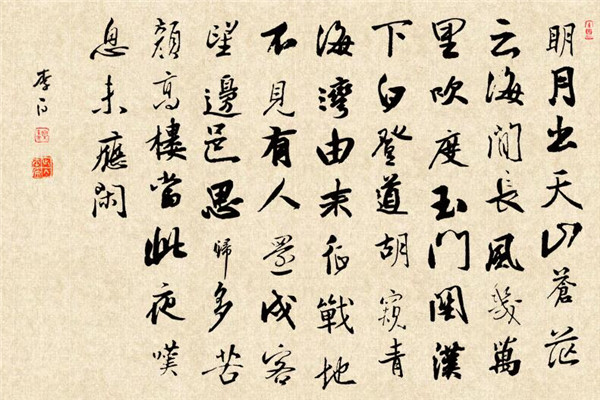 明月出天山蒼茫
云海間長風幾萬
里吹度玉門關漢
下白登道胡窺青
海灣由来征戰地
不見有人還戍客
望邊邑思歸多苦
顏高樓當此夜嘆
息未應閑
李白